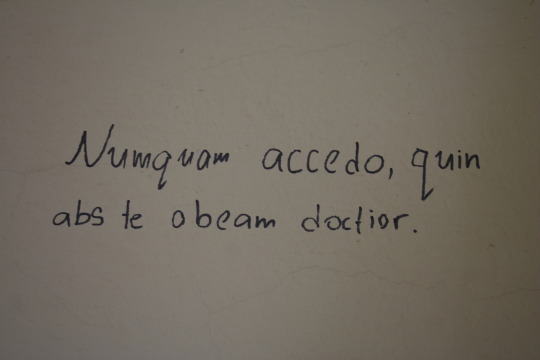 Numquam accedo, quin
abs te obeam doctior.